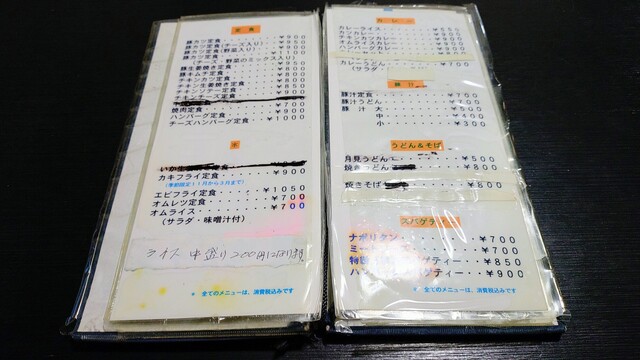 定食
豚カツ定食・・・・・・・￥900
豚カツ定食(チーズ入り)・・￥950
豚カツ定食(野菜入り)・・・￥900
豚カツ定食・・・・・・・￥1100
(チーズ・野菜のミックス入り)
豚生姜焼き定食・・・・・￥850
豚キムチ定食・・・・・・￥800
チキンカツ定食・・・・・￥800
チキン生姜焼き定食・・・￥800
チキンソテー定食・・・・￥900
チキンチーズ定食
焼肉定食・・・・・・・・￥900
ハンバーグ定食・・・・・￥900
チーズハンバーグ定食・・￥1000
いか生
カキフライ定食・・・・・・￥900
(季節限定)1月から3月まで)
エビフライ定食・・・・・￥1050
オムレツ定食・・・・・・￥700
オムライス・・・・・・・￥700
(サラダ・味噌汁付)
ライス 中盛り200円になります
＊ 全てのメニューは、消費税込みです
カレー
カレーライス・・・・・￥650
カツカレー・・・・・・￥900
チキンカツカレー
オムライスカレー
ハンバーグカレー
カレーうどん・・・・・・￥700
(サラダ・
豚汁
豚汁定食・・・・・・・￥700
豚汁うどん・・・・・・￥700
豚汁 大・・・・・・・￥500
中・・・・・・・￥400
小・・・・・・・￥300
うどん＆そば
月見うどん・・・・・￥500
焼きうどん・・・・￥800
焼きそば・・・・￥800
スパゲティー
ナポリタン・・・・・・・￥700
ミー・・・・￥700
ゲティー・・￥850
ゲティー・・￥900
＊ 全てのメニューは、消費税込みです